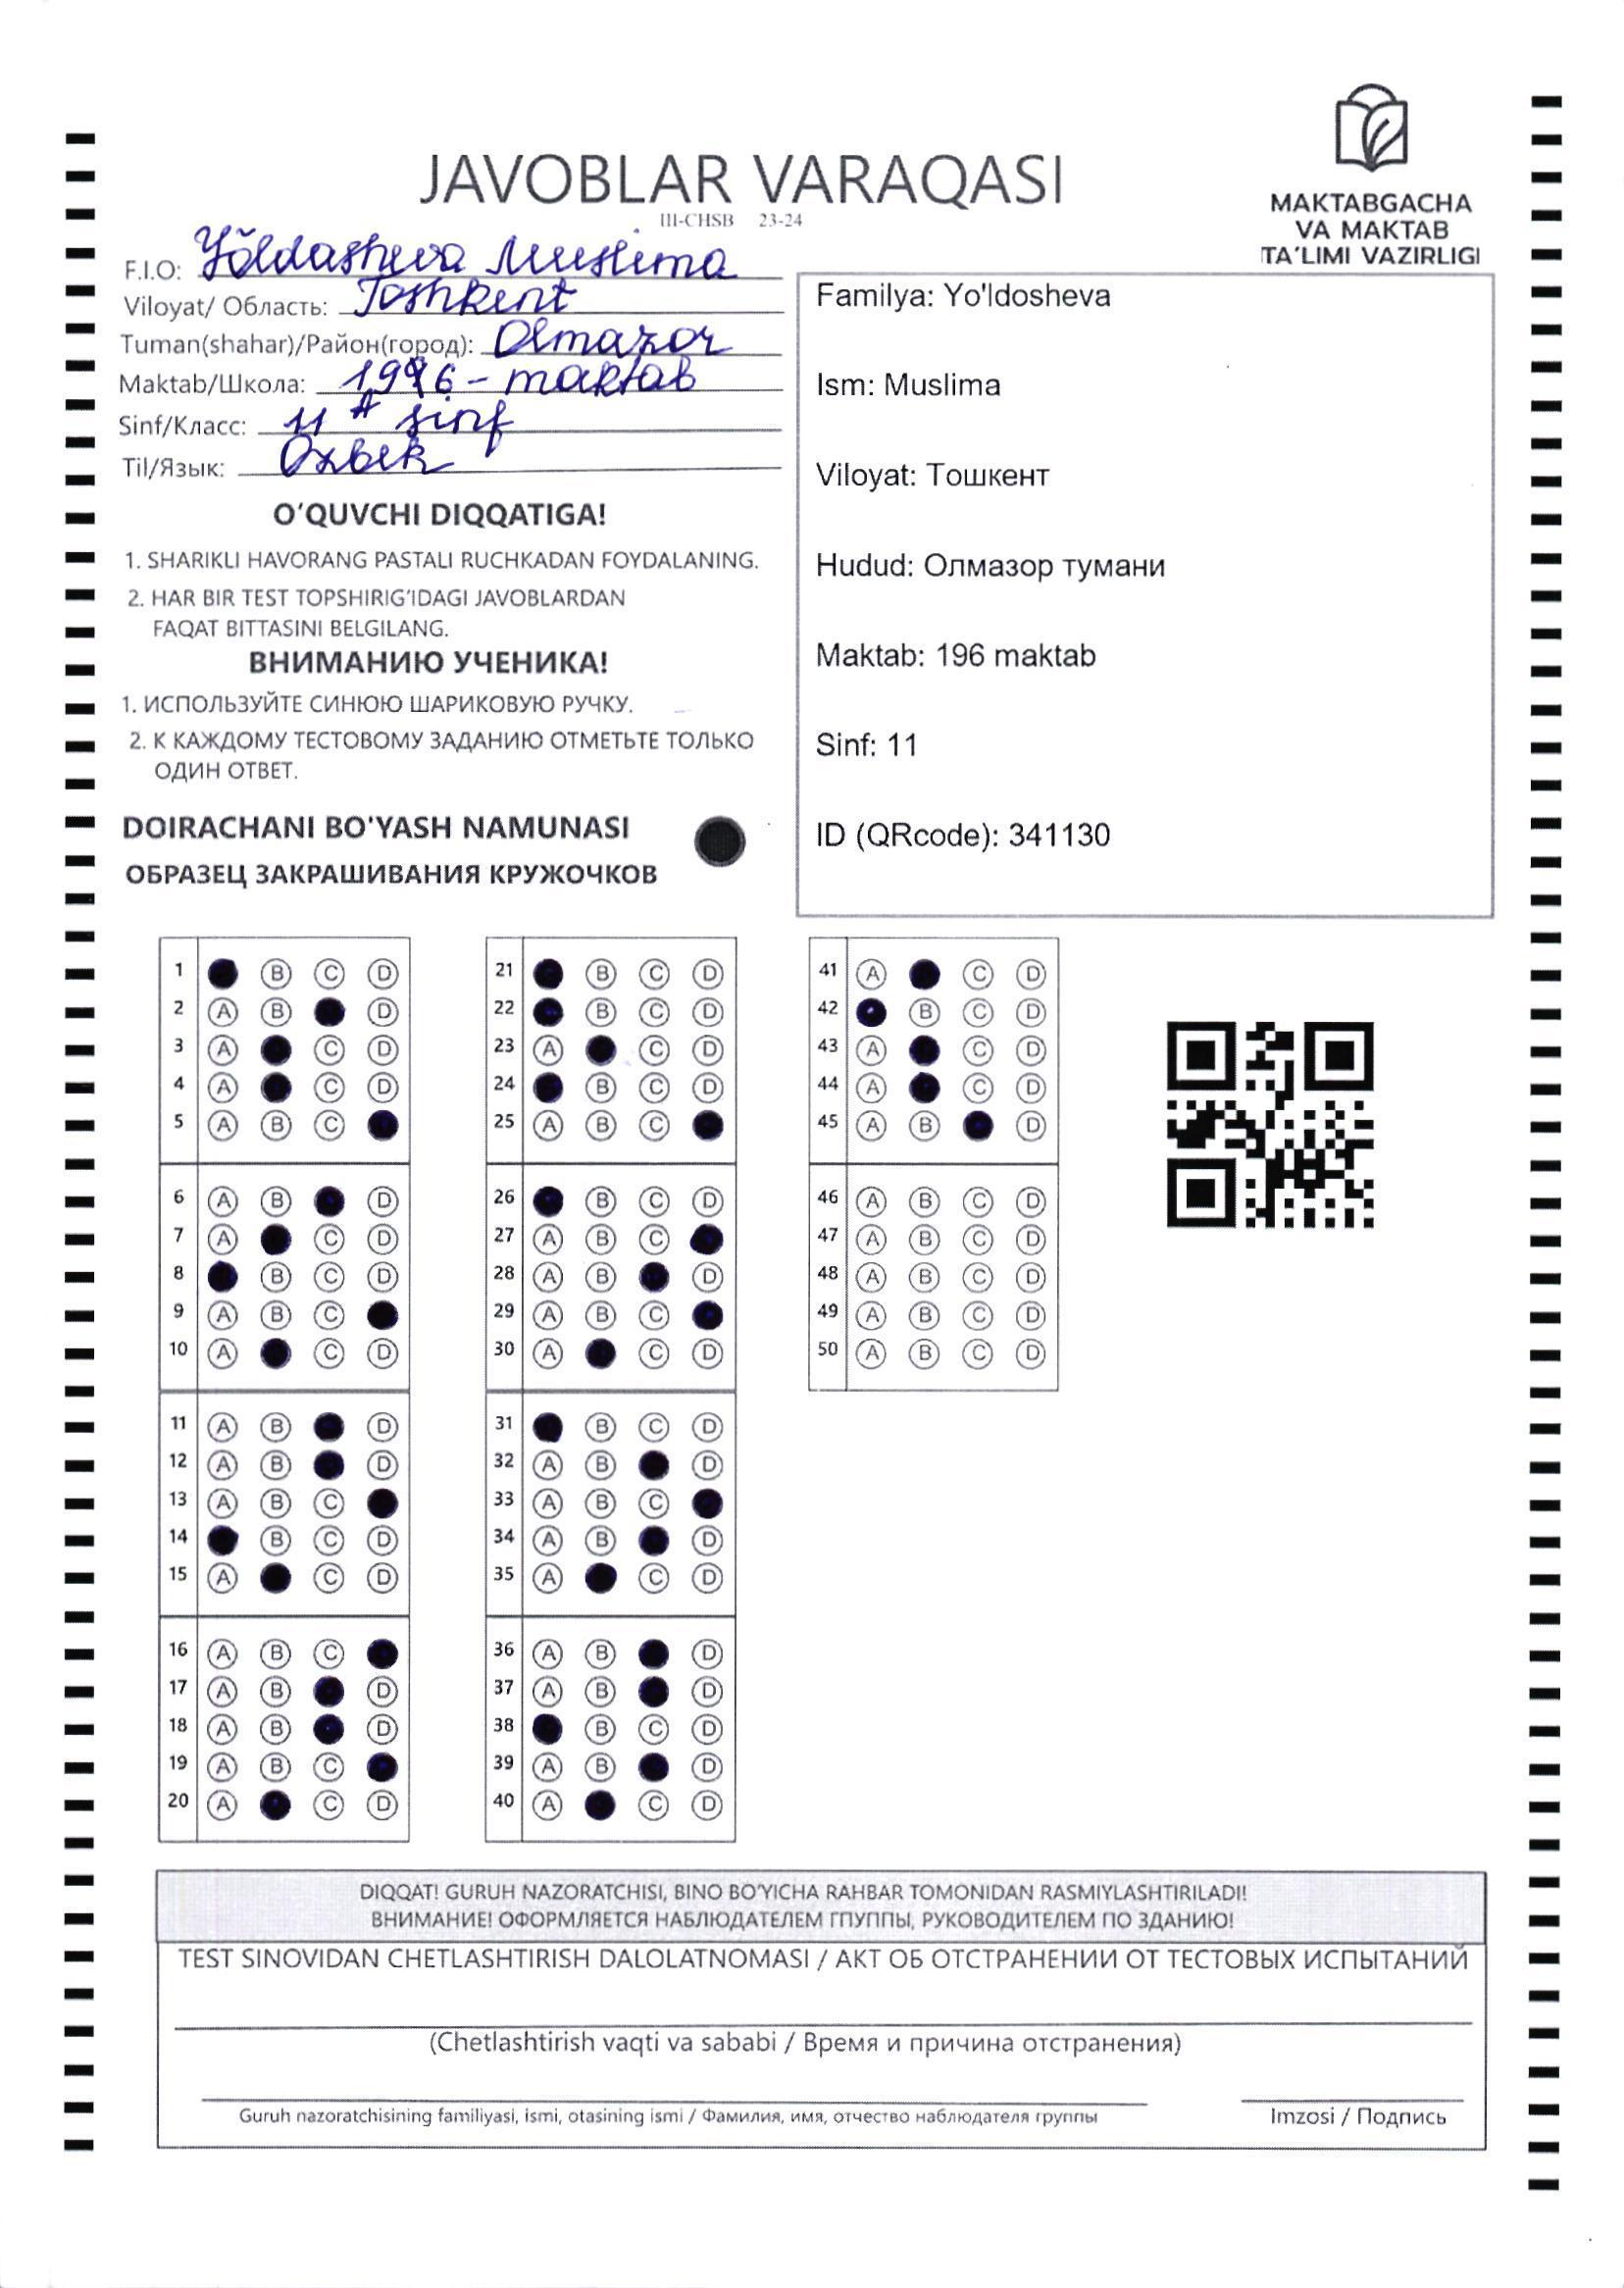 JAVOBLAR VARAQASI
III-CHSB 23-24
MAKTABGACHA
VA MAKTAB
TA'LIMI VAZIRLIGI
F.I.O: Yõldasheva Muslima
Viloyat/ Область: Toshkent
Tuman(shahar)/Район(город): Olmazor
Maktab/Школа: 196 - maktab
Sinf/Класс: 11 A sinf
Til/Язык: Ozbek
O'QUVCHI DIQQATIGA!
1. SHARIKLI HAVORANG PASTALI RUCHKADAN FOYDALANING.
2. HAR BIR TEST TOPSHIRIG'IDAGI JAVOBLARDAN
FAQAT BITTASINI BELGILANG.
ВНИМАНИЮ УЧЕНИКА!
1. ИСПОЛЬЗУЙТЕ СИНЮЮ ШАРИКОВУЮ РУЧКУ.
2. К КАЖДОМУ ТЕСТОВОМУ ЗАДАНИЮ ОТМЕТЬТЕ ТОЛЬКО
ОДИН ОТВЕТ.
DOIRACHANI BO'YASH NAMUNASI
ОБРАЗЕЦ ЗАКРАШИВАНИЯ КРУЖОЧКОВ
Familya: Yo'ldosheva
Ism: Muslima
Viloyat: Тошкент
Hudud: Олмазор тумани
Maktab: 196 maktab
Sinf: 11
ID (QRcode): 341130
1 B C D
2 A B D
3 A C D
4 A C D
5 A B C
6 A B D
7 A C D
8 B C D
9 A B C
10 A C D
11 A B D
12 A B D
13 A B C
14 B C D
15 A C D
16 A B C
17 A B D
18 A B D
19 A B C
20 A C D
21 B C D
22 B C D
23 A C D
24 B C D
25 A B C
26 B C D
27 A B C
28 A B D
29 A B C
30 A C D
31 B C D
32 A B D
33 A B C
34 A B D
35 A C D
36 A B D
37 A B D
38 B C D
39 A B D
40 A C D
41 A C D
42 B C D
43 A C D
44 A C D
45 A B D
46 A B C D
47 A B C D
48 A B C D
49 A B C D
50 A B C D
DIQQAT! GURUH NAZORATCHISI, BINO BO'YICHA RAHBAR TOMONIDAN RASMIYLASHTIRILADI!
ВНИМАНИЕ! ОФОРМЛЯЕТСЯ НАБЛЮДАТЕЛЕМ ГПУППЫ, РУКОВОДИТЕЛЕМ ПО ЗДАНИЮ!
TEST SINOVIDAN CHETLASHTIRISH DALOLATNOMASI / АКТ ОБ ОТСТРАНЕНИИ ОТ ТЕСТОВЫХ ИСПЫТАНИЙ
(Chetlashtirish vaqti va sababi / Время и причина отстранения)
Guruh nazoratchisining familiyasi, ismi, otasining ismi / Фамилия, имя, отчество наблюдателя группы
Imzosi / Подпись